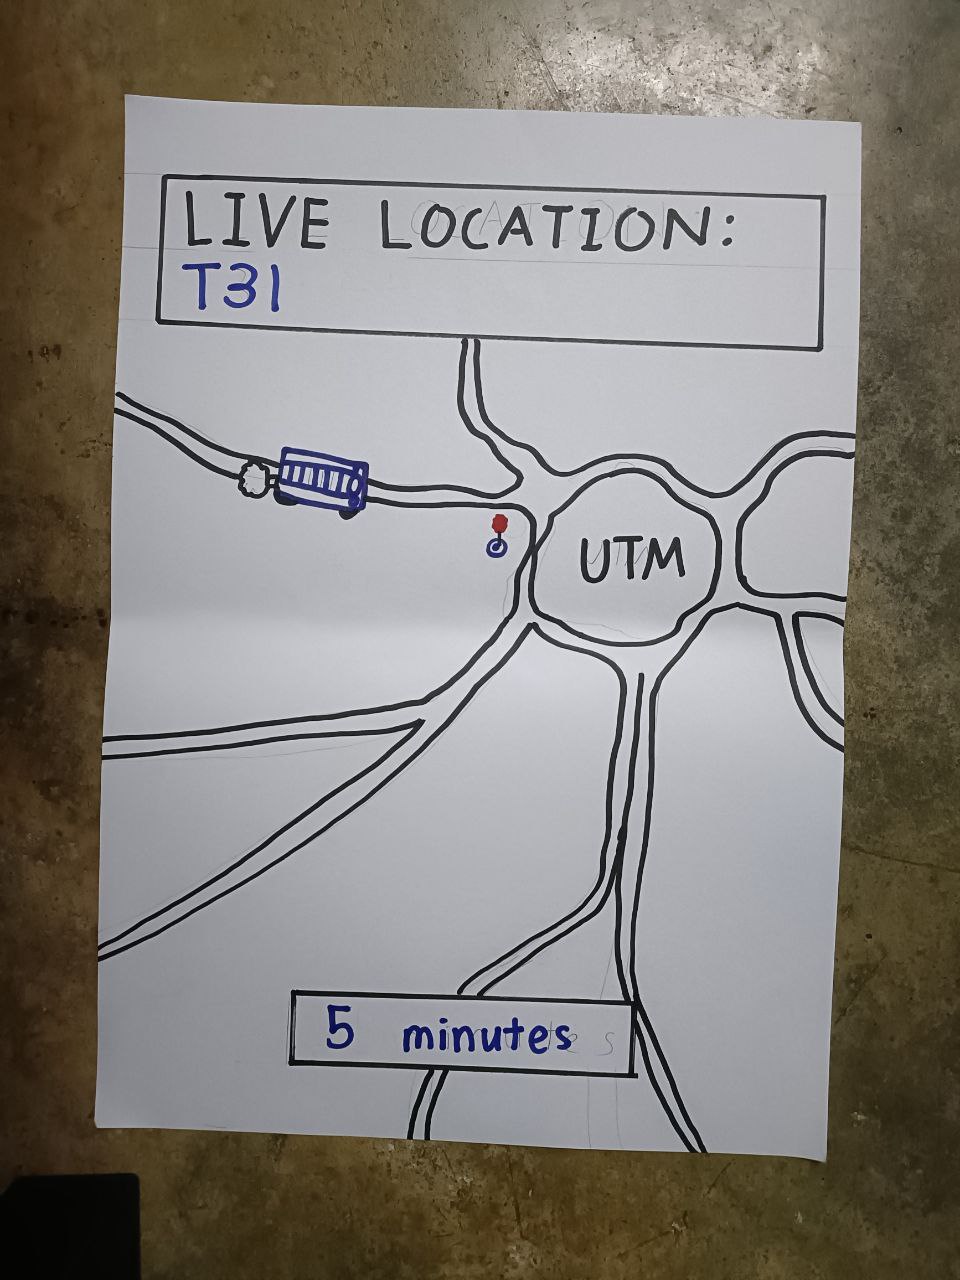 LIVE LOCATION:
T31
UTM
5 minutes